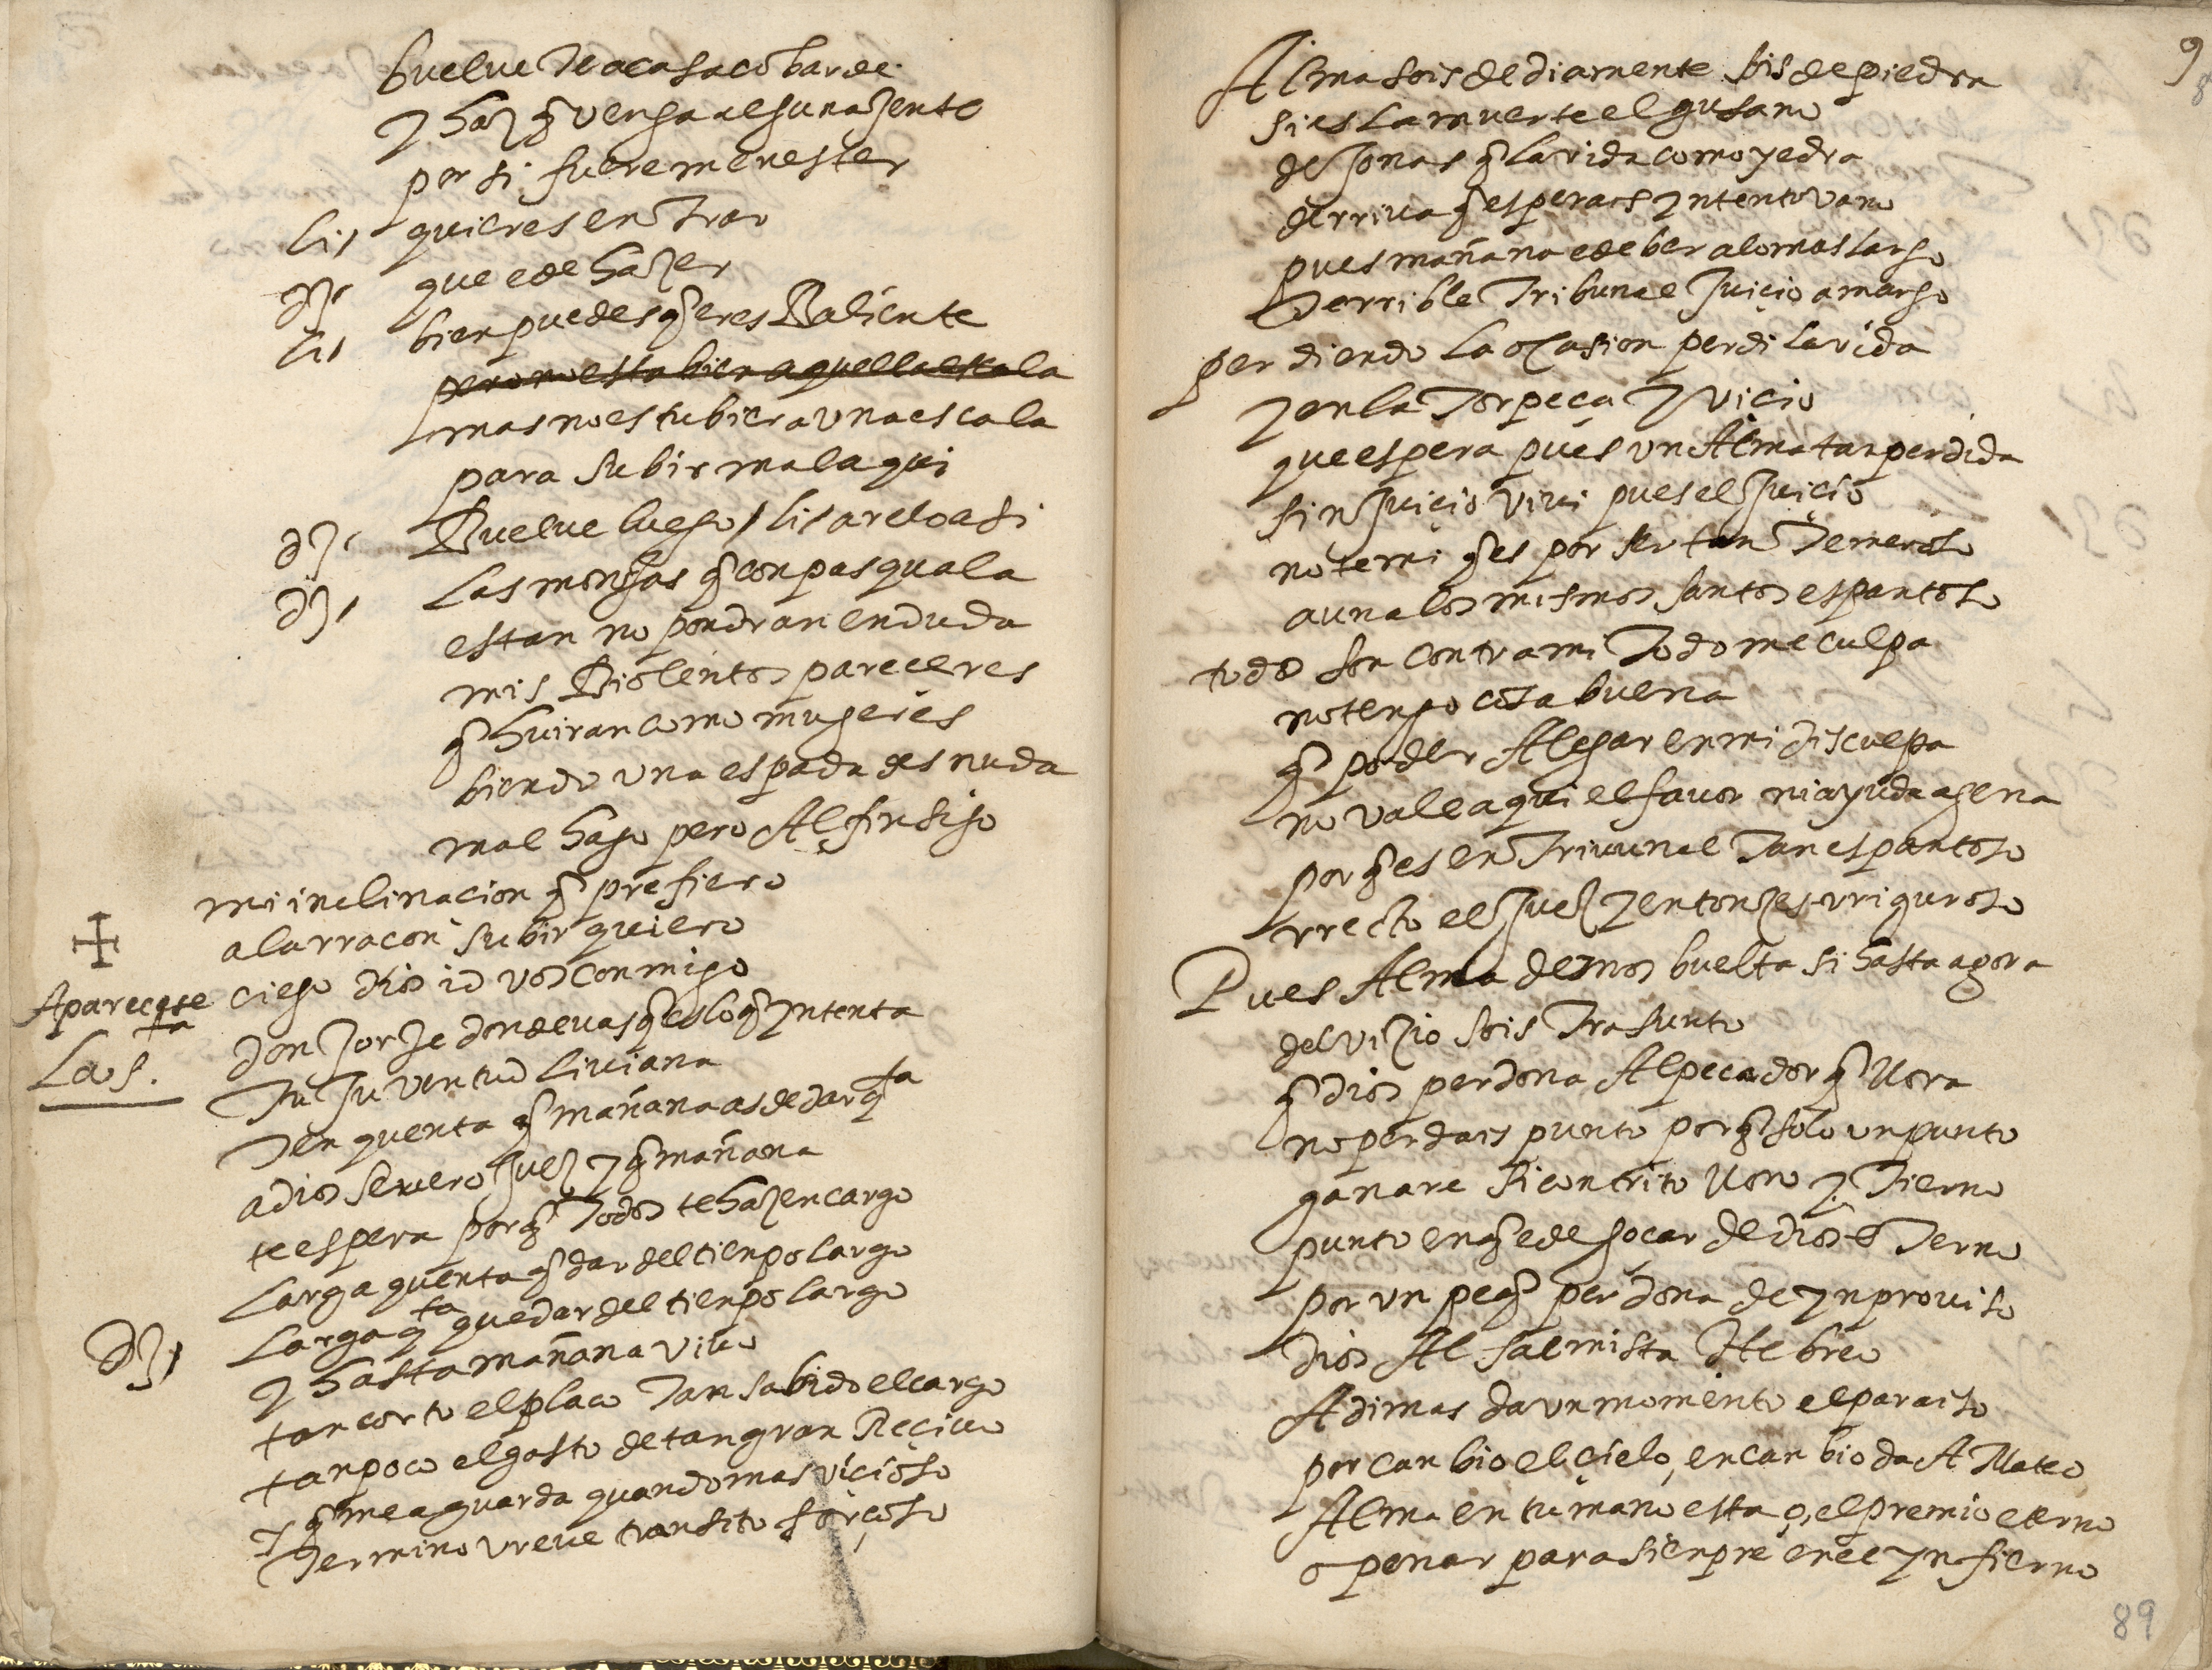 buelue te a casa cobarde
y haz q̃ venga alguna jente
por si fuere menester
lis quieres entrar
dJ. que e de hazer
lis bien puedes q̃ eres baliente
pero no esta bien aquella escala
mas no estubiera una escala
para subir mal aqui
dJ. Buelue luego / lisardo asi
dJ. las monjas q̃ con pasquala
estan no pondran en duda
mis biolentos pareceres
q̃ huiran como mugeres
biendo una espada desnuda
mal hago pero Al fin sigo
mi inclinacion q̃ prefiero
a la rracon subir quiero
Aparecese ciego dios id vos conmigo
la s.ta don Jorje donde uas q̃ es lo q̃ yntenta
Tu Juventud liuiana
Ten quenta q̃ mañana as de dar q.ta
a dios seuero Juez y q̃ mañana
te espera porq̃ Todos te hazen cargo
larga quenta q̃ dar del tienpo largo
dJ. larga q.ta que dar del tienpo largo
y hasta mañana viuo
tan corto el placo Tan sabido el cargo
tan poco el gasto de tan gran Reciuo
y q̃ me aguarda quando mas vicioso
Termino vreue transito forçoso
Alma sois de diamente sois de piedra
si es la muerte el gusano
de Jonas q̃ la vida como yedra
derriua q̃ esperais yntento vano
pues mañana e de ber a lo mas largo
Terrible Tribunal Juicio amargo
perdiendo la ocasion perdi la vida
y en la Torpeca y vicio
que espera pues un Alma tan perdida
sin Juicio viui pues el Juicio
no temi q̃ es por ser tan Temeroso
aun a los mismos santos espantoso
todos son contra mi Todo me culpa
no tengo cosa buena
q̃ poder Alegar en mi disculpa
no vale aqui el fauor ni ayuda agena
porq̃ es en Triuunal Tan espantoso
rrecto el Juez y entonzes rriguroso
Pues Alma demos buelta si hasta agora
del vizio sois Trasunto
q̃ dios perdona Al pecador q̃ llora
no perdais punto porq̃ solo un punto
ganare si contrito lloro y Tierno
punto en q̃ e de gocar de dios eTerno
por un peq̃ perdona de ynprouiso
dios Al salmista Hebreo
A dimas da un momento el paraiso
por canbio el cielo, en canbio da A Mateo
Alma en tu mano esta o, el premio eterno
o penar para sienpre en el ynfierno
89